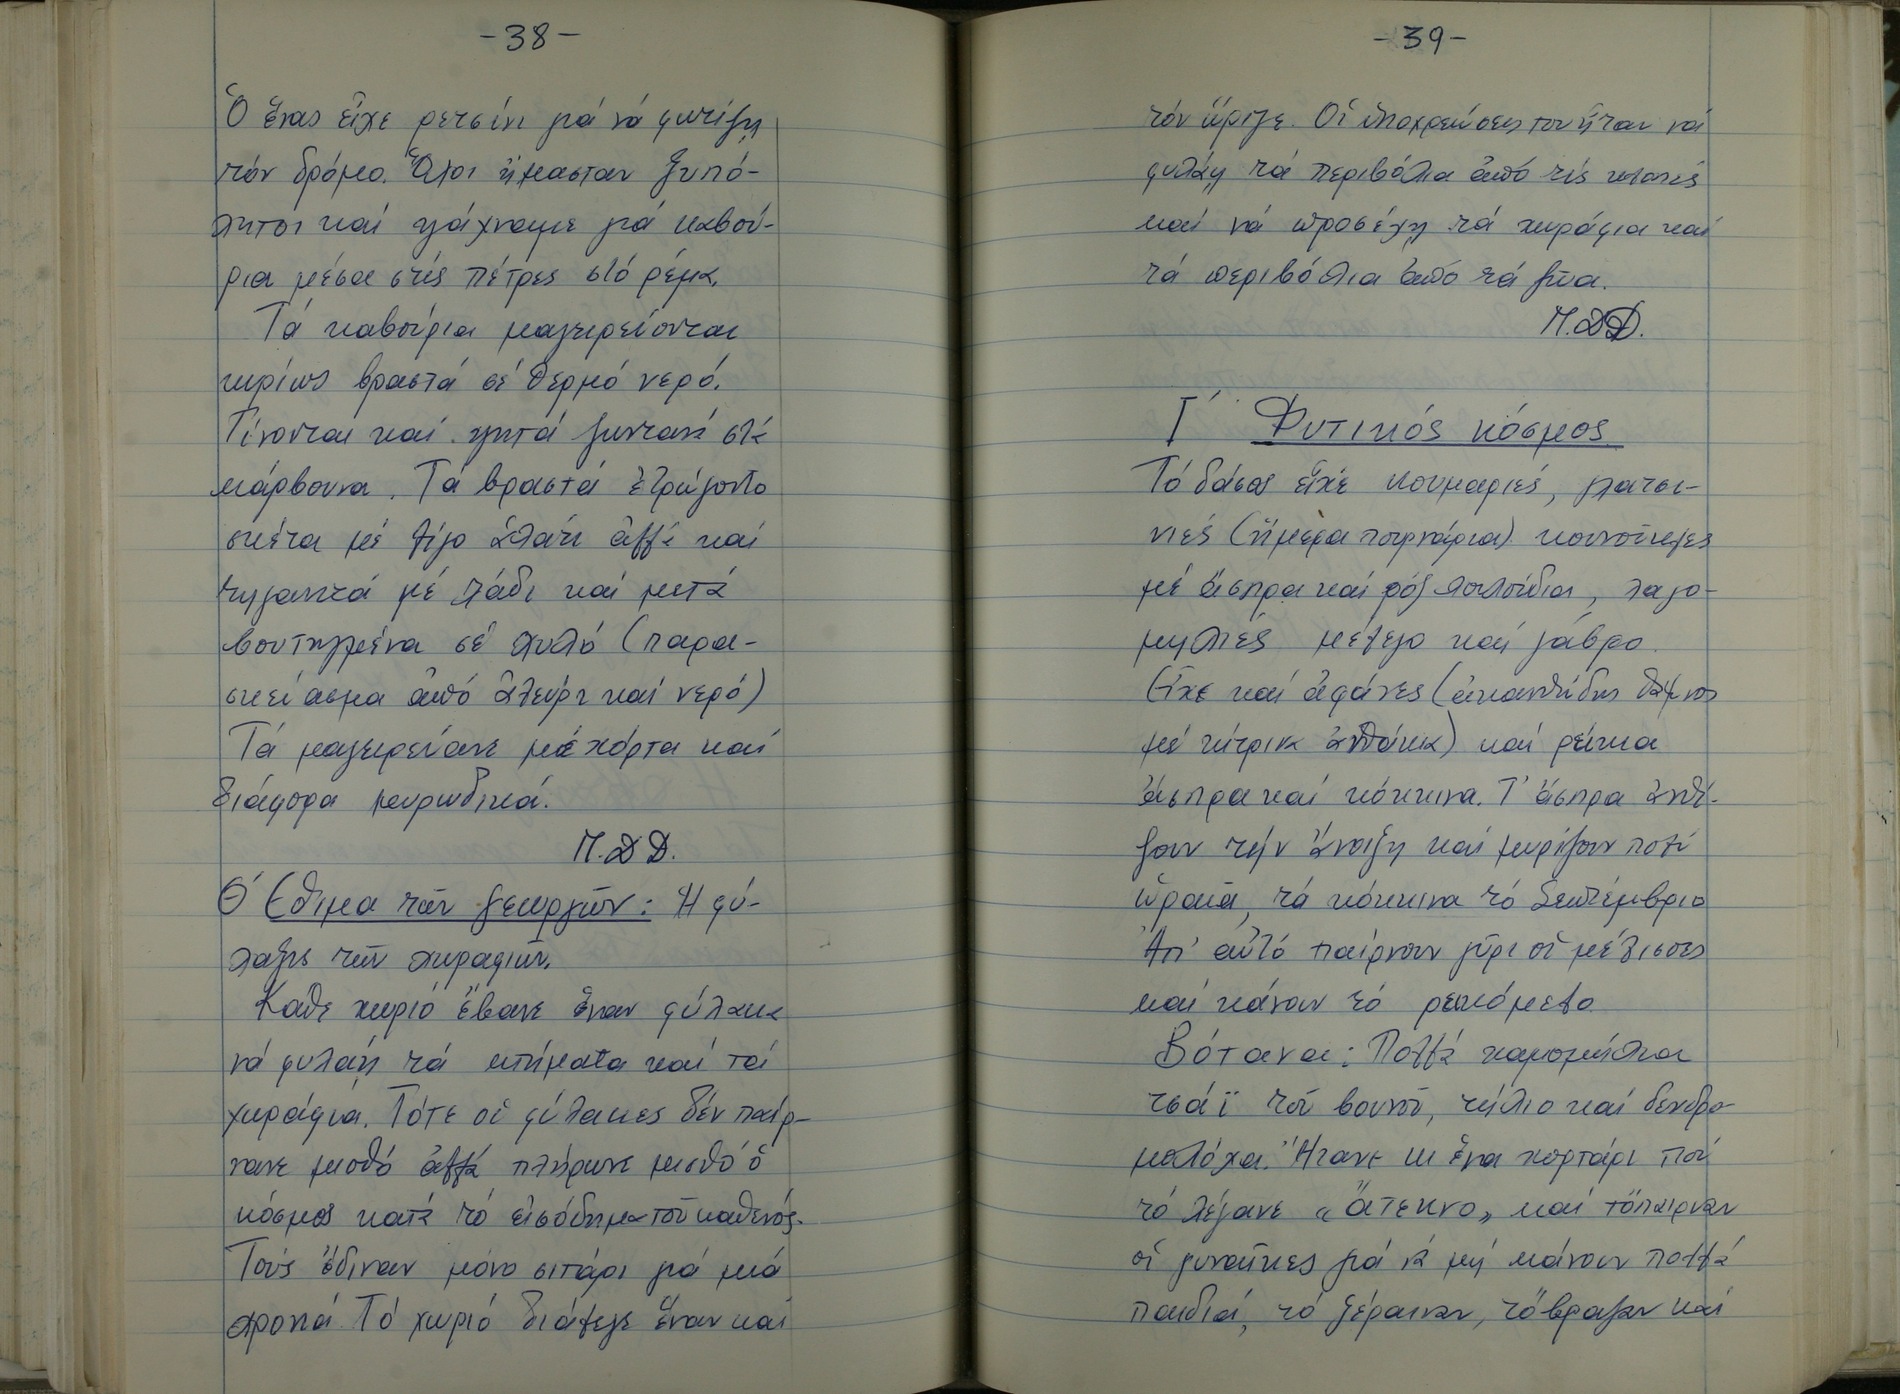 -38-
Ὁ ἕνας εἶχε ρετσίνι γιά νά φωτίζη
τόν δρόμο. Ὅλοι ἤμασταν ξυπό-
λητοι καί ψάχναμε γιά καβού-
ρια μέσα στίς πέτρες στό ρέμα.
Τά καβούρια μαγειρεύονται
κυρίως βραστά σέ θερμό νερό.
Γίνονται καί ψητά ζωντανά στά
κάρβουνα. Τά βραστά ἐτρώγοντο
σκέτα μέ λίγο ἁλάτι ἀλλά καί
τηγανιτά μέ λάδι καί μετά
βουτηγμένα σέ χυλό (παρα-
σκεύασμα ἀπό ἀλεύρι καί νερό)
Τά μαγειρεύανε μέ χόρτα καί
διάφορα μυρωδικά.
Μ.Δ.Δ.
Θ΄ Εθιμα τῶν γεωργῶν: Ἡ φύ-
λαξις τῶν χωραφιῶν.
Κάθε χωριό ἔβανε ἕναν φύλακα
νά φυλάη τά κτήματα καί τά
χωράφια. Τότε οἱ φύλακες δέν παίρ-
νανε μισθό ἀλλά πλήρωνε μισθό ὁ
κόσμος κατά τό εἰσόδημα τοῦ καθενός.
Τούς ἔδιναν μόνο σιτάρι γιά μιά
χρονιά. Τό χωριό διάλεγε ἕναν καί
-39-
τόν ὅριζε. Οἱ ὑποχρεώσεις του ἦταν νά
φυλάη τά περιβόλια ἀπό τίς κλοπές
καί νά προσέχη τά χωράφια καί
τά περιβόλια ἀπό τά ζῶα.
Μ.Δ.Δ.
Γ΄ Φυτικός κόσμος
Τό δάσος εἶχε κουμαριές, γλατσι-
νιές (ἥμερα πουρνάρια) κουνοῦκλες
μέ ἄσπρα καί ρόζ λουλούδια, λαγο-
μηλιές μέλεγο καί γάβρο.
Εἶχε καί ἀφάνες (ἀκανθώδης θάμνος
μέ κίτρινα ἀνθάκια) καί ρείκια
ἄσπρα καί κόκκινα. Τ' ἄσπρα ἀνθί-
ζουν τήν ἄνοιξη καί μυρίζουν πολύ
ὡραῖα, τά κόκκινα τό Σεπτέμβριο
Ἀπ' αὐτό παίρνουν γῦρι οἱ μέλισσες
καί κάνουν τό ρεικόμελο
Βότανα: Πολλά χαμομήλια
τσάϊ τοῦ βουνοῦ, τήλιο καί δενδρο-
μολόχα. Ἤτανε κι ἕνα χορτάρι πού
τό λέγανε «ἄτεκνο» καί τὄπαιρναν
οἱ γυναῖκες γιά νά μή κάνουν πολλά
παιδιά, τό ξέραιναν, τὄβραζαν καί